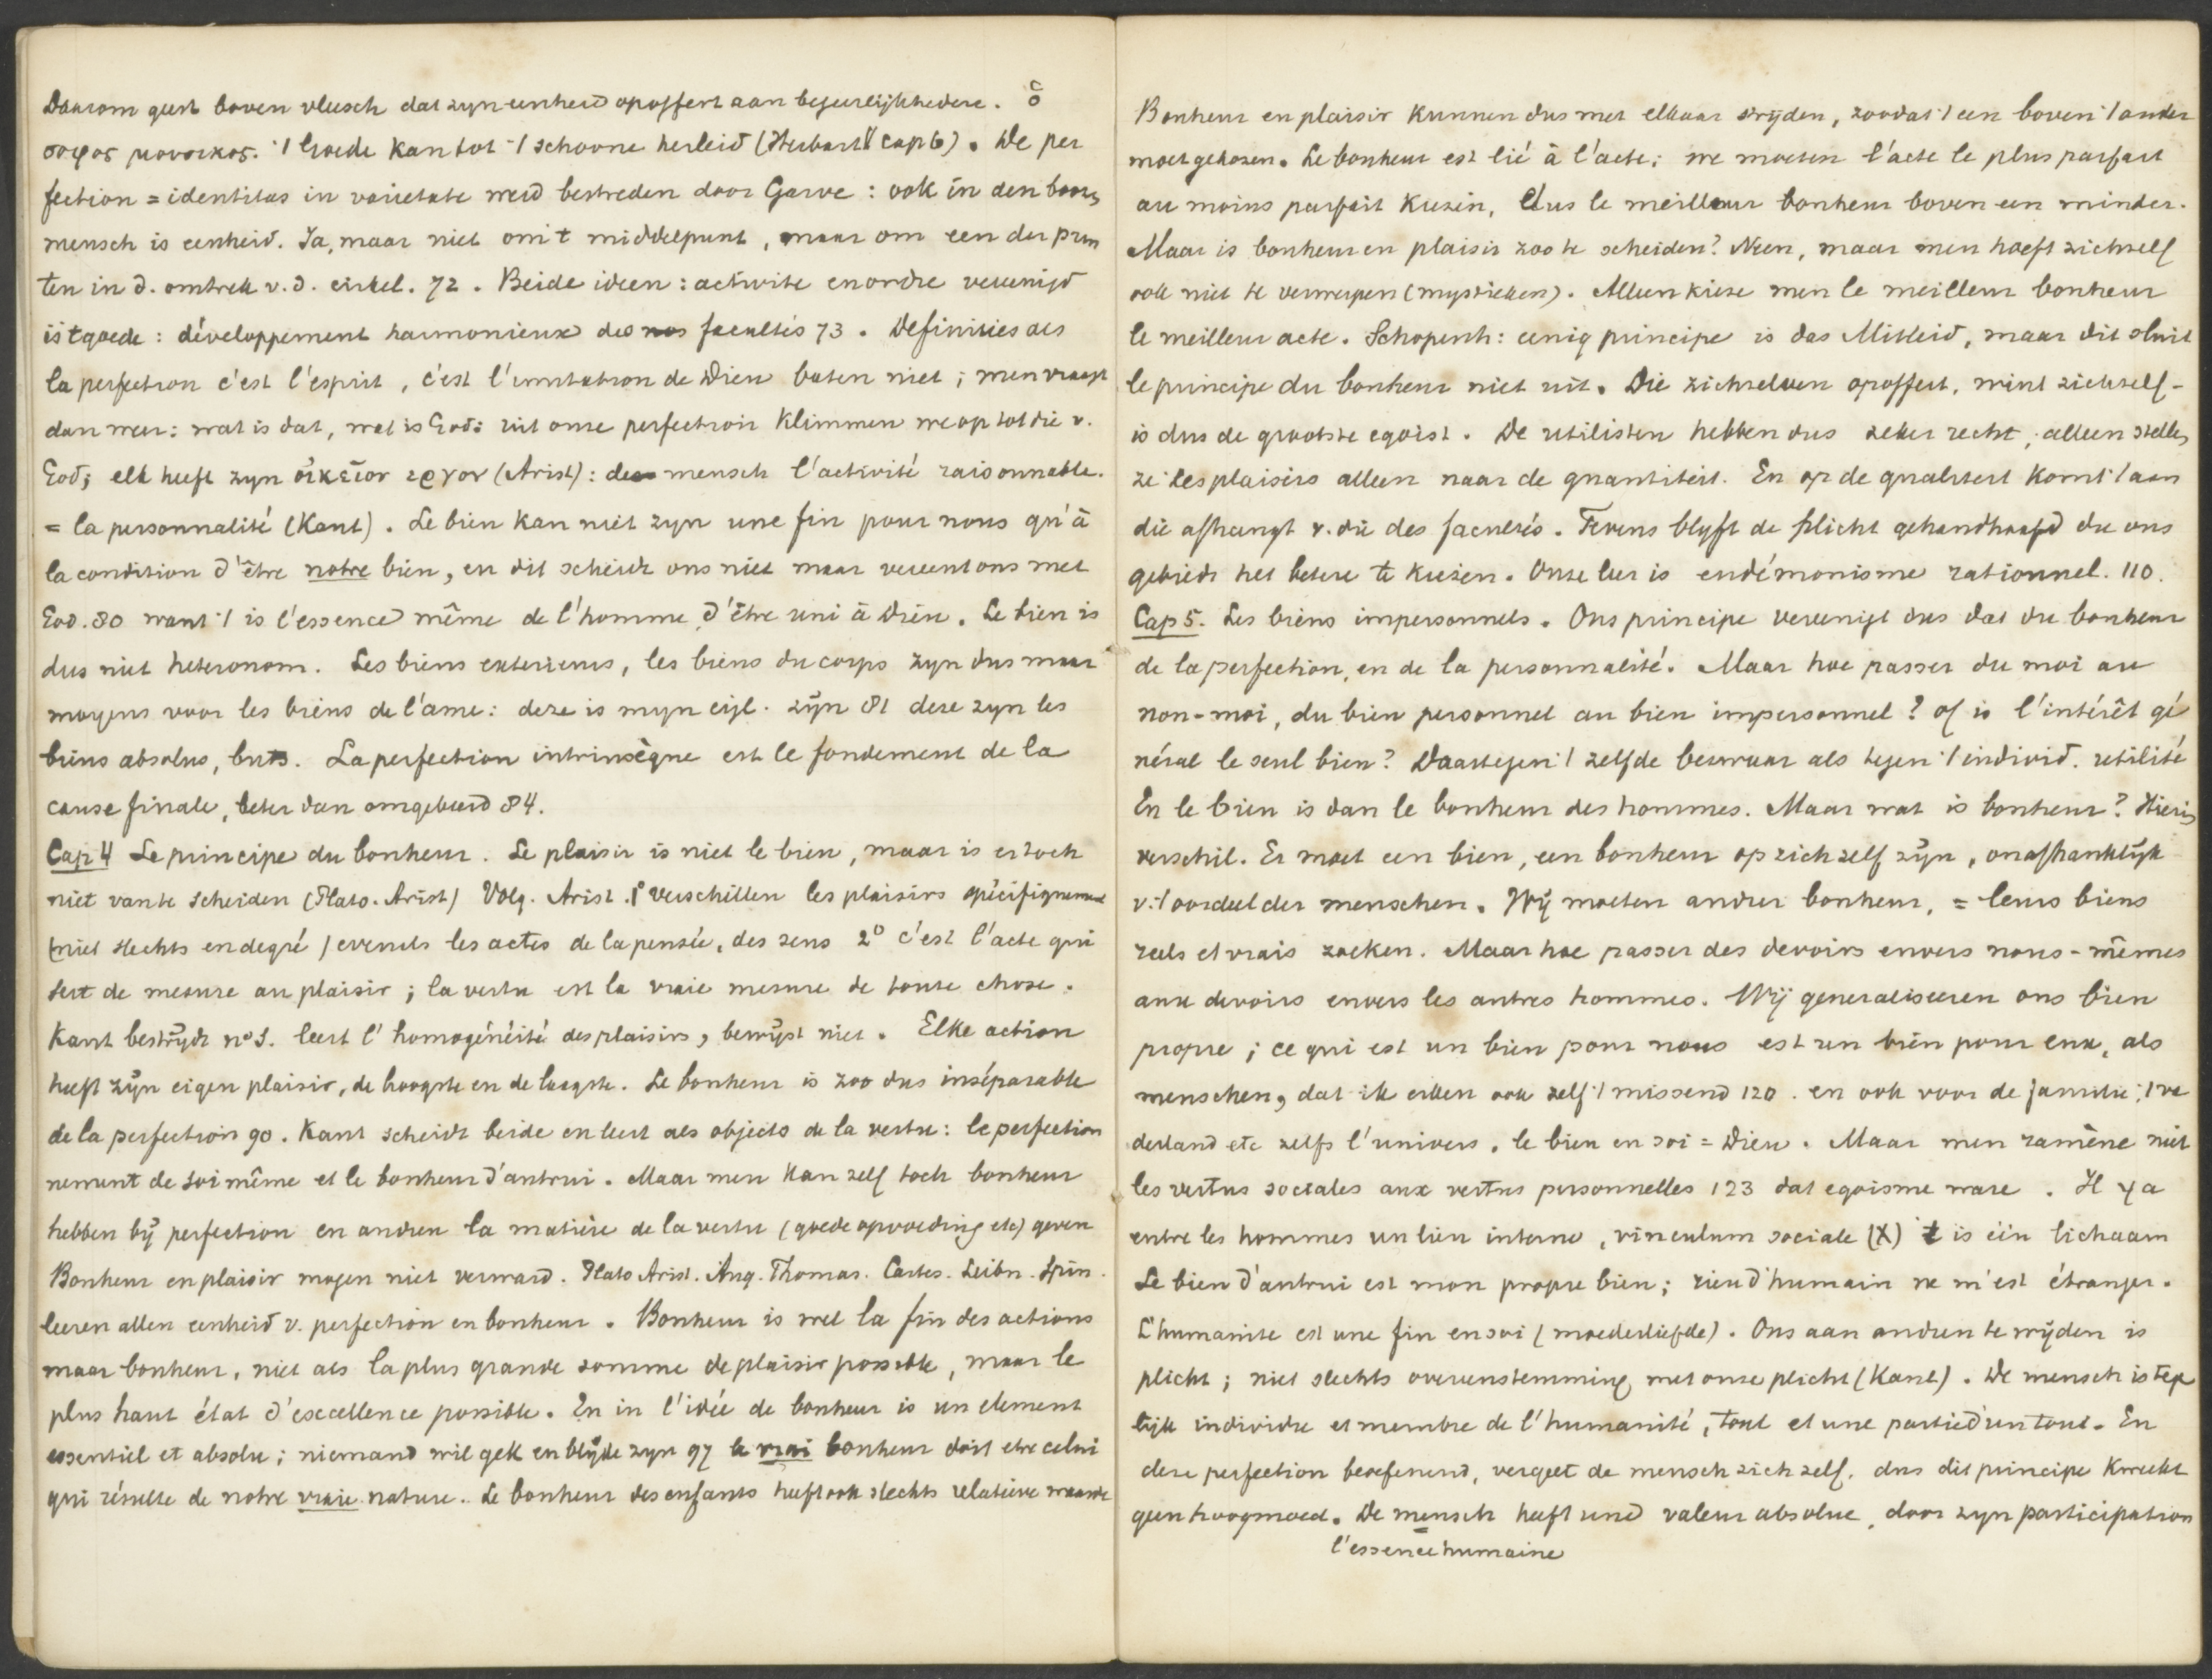 Daarom geest boven vleesch dat zyn eenheid opoffert aan begeerlijkhedens. ὁ
σοφος μουσικος. 't Goede kan tot 't schoone herleid (Herbart cap 6). De per
fection = identitas in varietate werd bestreden door Garve: ook in den boozen
mensch is eenheid. Ja, maar niet om 't middelpunt, maar om een der pun
ten in d. omtrek v. d. cirkel. 72. Beide ideen: activite en ordre vereenigd
is 't goede: développement harmonieux des nos facultés 73. Definities als
la perfection c'est l'esprit, c'est l'imitation de Dieu baten niet; men vraagt
dan weer: wat is dat, wat is God: uit onze perfection klimmen we op tot die v.
God; elk heeft zyn οἰκεῖον εργον (Arist): des mensch l'activité raisonnable.
= la personnalité (Kant). Le bien kan niet zyn une fin pour nous qu'à
la condition d'être notre bien, en dit scheidt ons niet maar vereent ons met
God. 80 want 't is l'essence même de l'homme d'être uni à Dieu. Le bien is
dus niet heteronom. Les biens exterieurs, les biens du corps zyn dus maar
moyens voor les biens de l'ame: deze is myn eig. zijn 81 deze zyn les
biens absolus, buts. La perfection intrinsèque est le fondement de la
cause finale, beter dan omgekeerd 84.
Cap 4 Le principe du bonheur. Le plaisir is niet le bien, maar is er toch
niet van te scheiden (Plato. Arist) Volg. Arist. 1° verschillen les plaisirs spécifiquement
(niet slechts en degré) evenals les actes de la pensée, des sens 2° c'est l'acte qui
sert de mesure au plaisir; la vertu est la vraie mesure de toute chose.
Kant bestrijdt n° 1. leert l'homogénéité des plaisirs, bewijst niet. Elke action
heeft zijn eigen plaisir, de hoogste en de laagste. Le bonheur is zoo dus inséparable
de la perfection 90. Kant scheidt beide en leert als objects de la vertu: le perfection
nement de soi même et le bonheur d'autrui. Maar men kan zelf toch bonheur
hebben bij perfection en andren la matière de la vertu (goede opvoeding etc) geven
Bonheur en plaisir mogen niet verward. Plato Arist. Aug. Thomas. Cartes. Leibn. Spin.
leeren allen eenheid v. perfection en bonheur. Bonheur is wel la fin des actions
maar bonheur, niet als la plus grande somme de plaisir possible, maar le
plus haut état d'excellence possible. En in l'idée de bonheur is un element
essentiel et absolu; niemand wil gek en blijde zyn 97 le vrai bonheur doit etre celui
qui résulte de notre vraie nature. Le bonheur des enfants heeft ook slechts relatieve waarde
Bonheur en plaisir kunnen dus met elkaar strijden, zoodat 't een boven 't ander
moet gekozen. Le bonheur est lié à l'acte; we moeten l'acte le plus parfait
au moins parfait kiezen, dus le meilleur bonheur boven een minder.
Maar is bonheur en plaisir zoo te scheiden? Neen, maar men hoeft zichzelf
ook niet te verwerpen (mystieken). Alleen kieze men le meilleur bonheur
le meilleur acte. Schopenh: eenig principe is das Mitleid, maar dit sluit
le principe du bonheur niet uit. Die zichzelven opoffert, mint zichzelf -
is dus de grootste egoist. De utilisten hebben dus zeker recht, alleen stellen
ze les plaisirs alleen naar de quantiteit. En op de qualiteit komt 't aan
die afhangt v. die des facultés. Tevens blyft de plicht gehandhaafd die ons
gebiedt het betere te kiezen. Onze leer is eudémonisme rationnel. 110.
Cap 5. Les biens impersonnels. Ons principe vereenigt dus dat du bonheur
de la perfection, en de la personnalité. Maar hoe passer du moi au
non-moi, du bien personnel au bien impersonnel? of is l'intérêt gé
néral le seul bien? Daartegen 't zelfde bezwaar als tegen 't individ. utilité
En le bien is dan le bonheur des hommes. Maar wat is bonheur? Hierin
verschil. Er moet een bien, een bonheur op zich zelf zijn, onafhanklijk
v. 't oordeel der menschen. Wij moeten andrer bonheur, = leurs biens
reels et vrais zoeken. Maar hoe passer des devoirs envers nous-mêmes
aux devoirs envers les autres hommes. Wij generaliseeren ons bien
propre; ce qui est un bien pour nous est un bien pour eux, als
menschen, dat ik erken ook zelf 't missend 120. en ook voor de familie, 't va
derland etc zelfs l'univers, le bien en soi = Dieu. Maar men ramène niet
les vertus sociales aux vertus personnelles 123 dat egoisme ware. Il y a
entre les hommes un lien interne, vinculum sociale (X) 't is één lichaam
Le bien d'autrui est mon propre bien; rien d'humain ne m'est étranger.
L'humanite est une fin en soi (moederliefde). Ons aan andren te wijden is
plicht; niet slechts overeenstemming met onze plicht (Kant). De mensch is tege
lijk individu et membre de l'humanité, tout et une partie d'un tout. En
deze perfection beoefenend, vergeet de mensch zich zelf, dus dit principe kweekt
geen hoogmoed. De mensch heeft une valeur absolue, door zyn participation
l'essence humaine